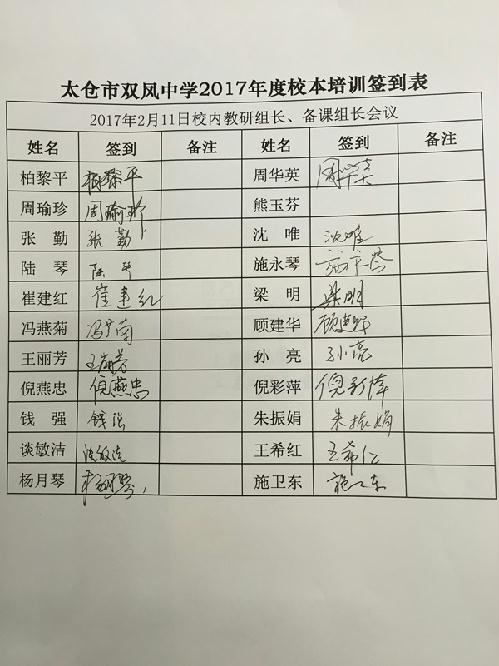 太仓市双凤中学2017年度校本培训签到表
2017年2月11日校内教研组长、备课组长会议
姓名 签到 备注 姓名 签到 备注
柏黎平 柏黎平 周华英 周华英
周瑜珍 周瑜珍 熊玉芬
张勤 张勤 沈唯 沈唯
陆琴 陆琴 施永琴 施永琴
崔建红 崔建红 梁明 梁明
冯燕菊 顾建华
王丽芳 王丽芳 孙亮 孙亮
倪燕忠 倪燕忠 倪彩萍 倪彩萍
钱强 钱强 朱振娟 朱振娟
谈敏洁 谈敏洁 王希红
杨月琴 杨月琴 施卫东 施卫东